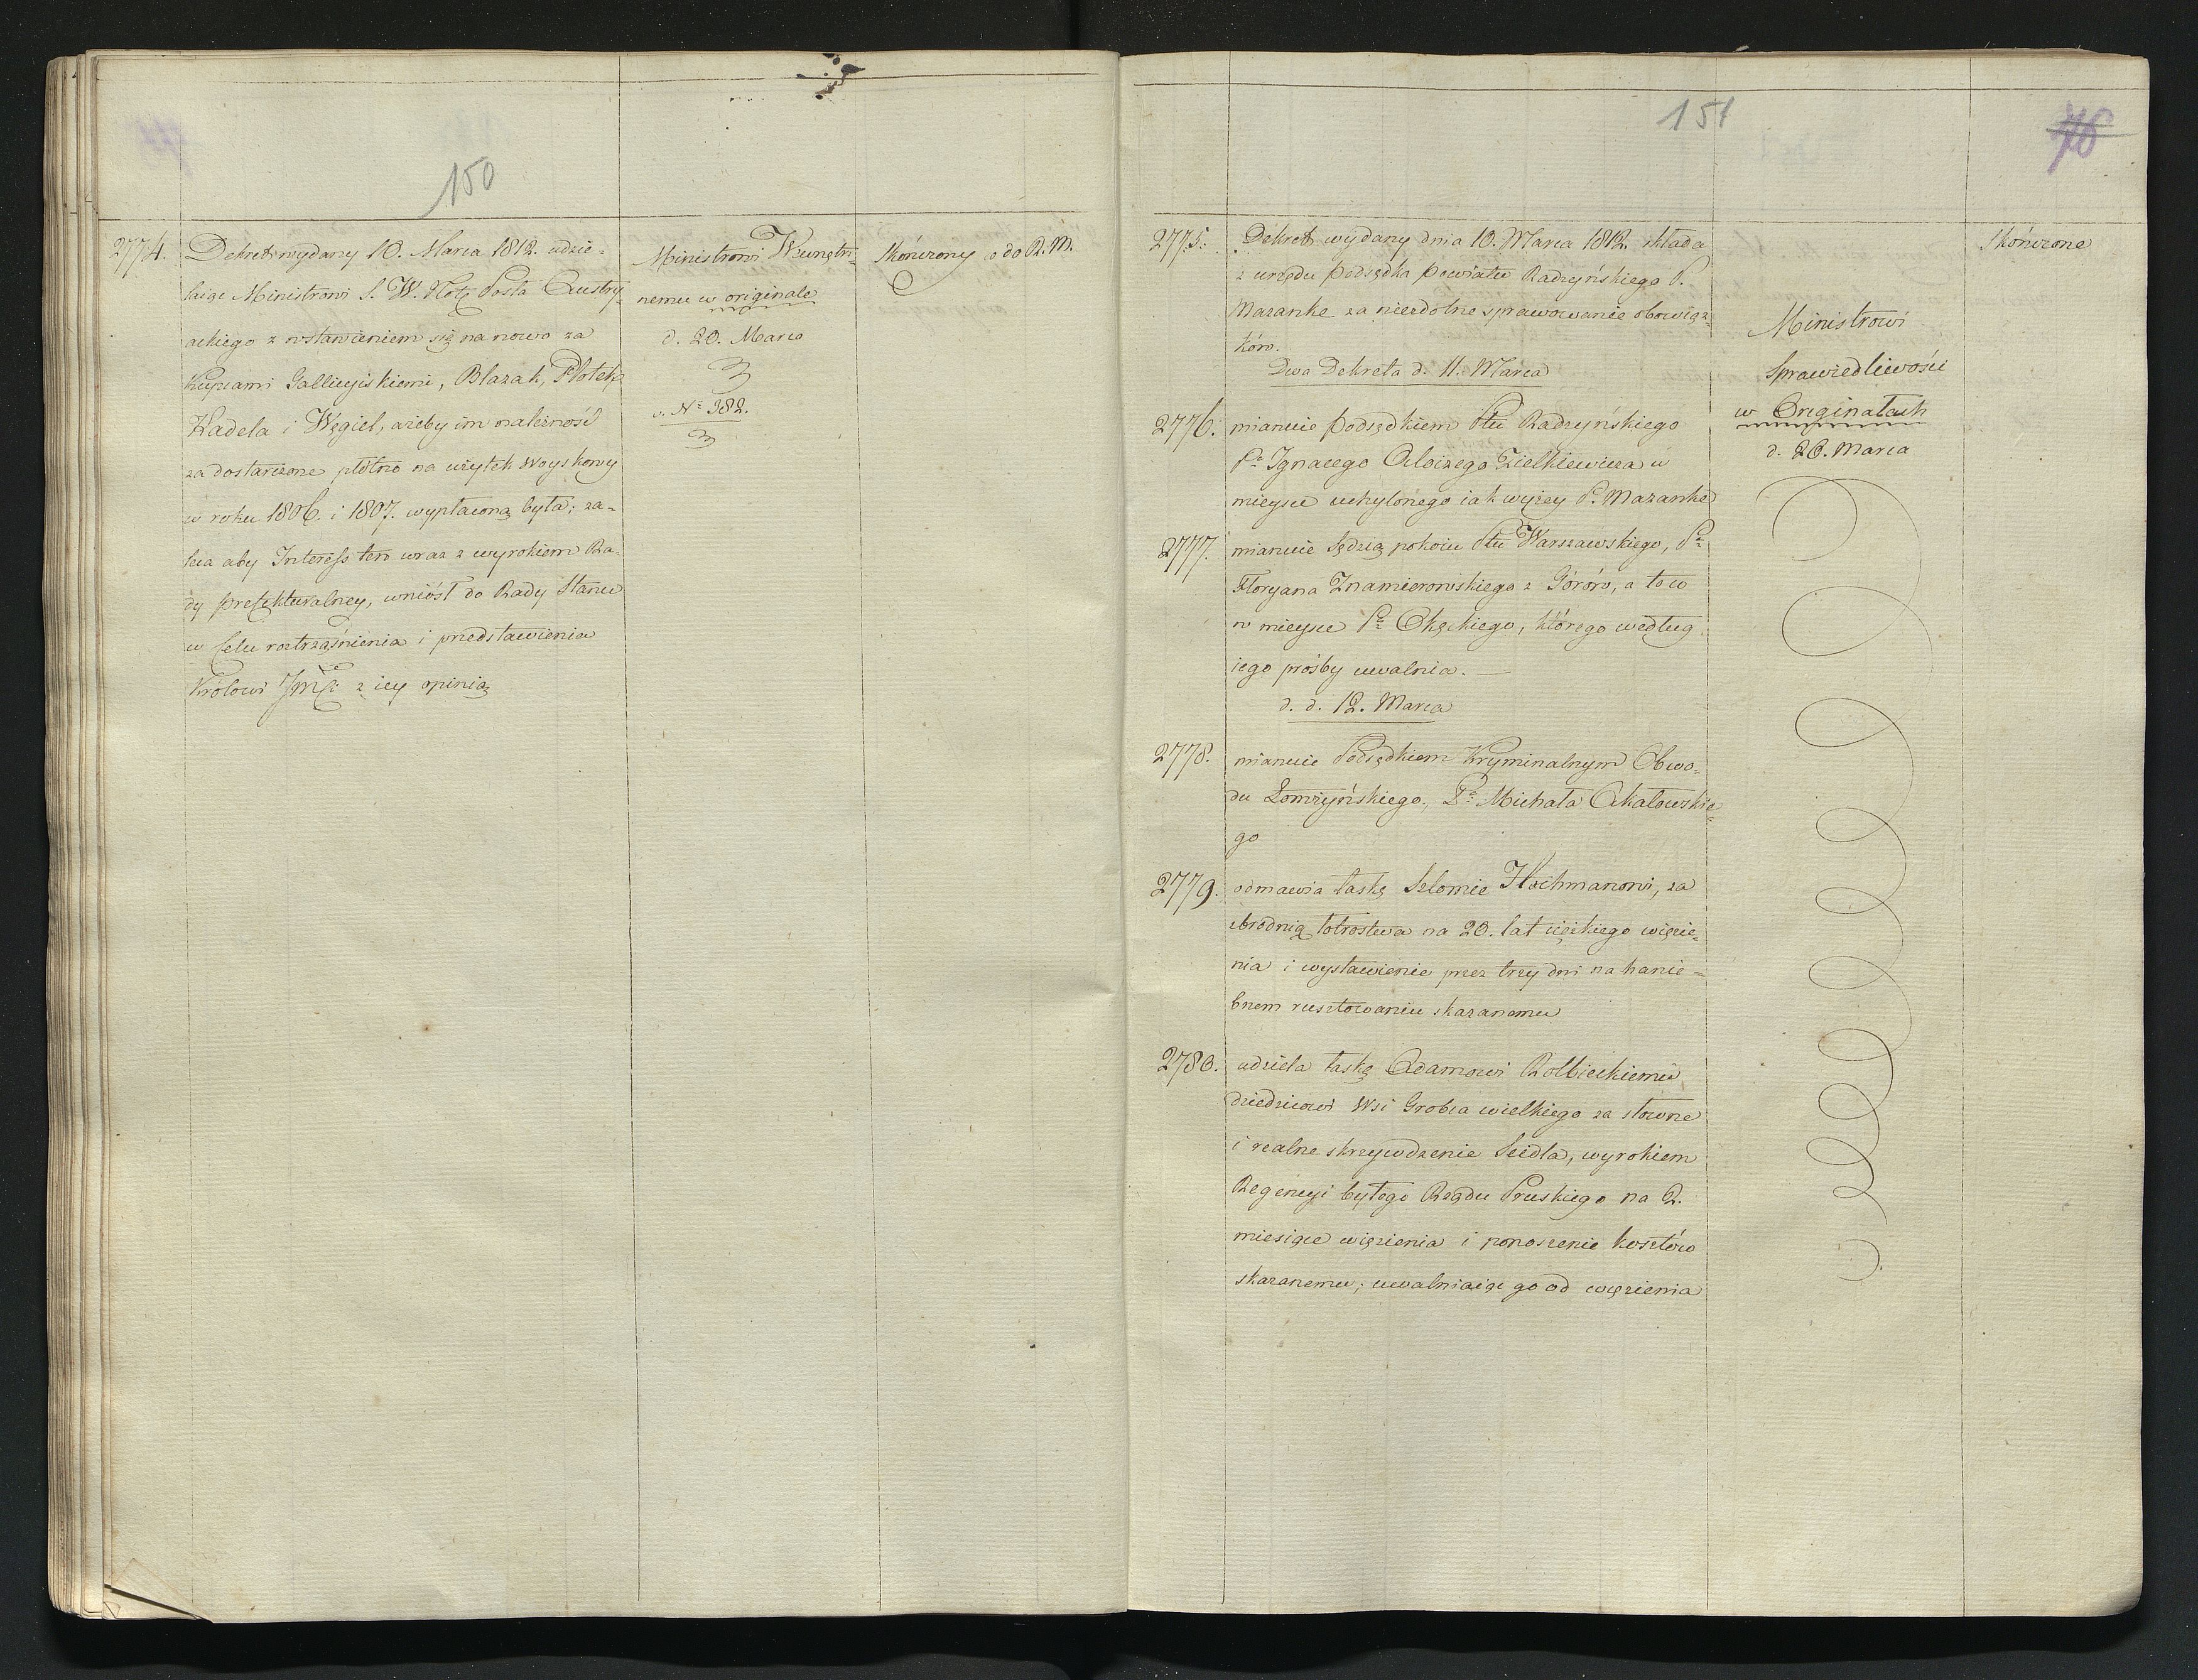 150
2774. Dekret wydany 10. Marca 1812. udzie-
laiąc Ministrowi S. W. Notę Posła Austry-
ackiego z wstawieniem się na nowo za
Kupcami Gallicyiskiemi, Blazak, Płotek
Kadela i Węgiel, ażeby im należność
za dostarczone płótno na użytek woyskowy
w roku 1806. i 1807. wypłaconą była; za-
leca aby Interess ten wraz z wyrokiem Ra-
dy prefekturalney, wniósł do Rady Stanu
w Celu roztrząśnienia i przedstawienia
Królowi Jmći z iey opinią
Ministrowi Wewnętrz-
nemu w originale
d. 20. Marca
v. Nº 382.
Skończony o do R. M.
151
76
2775. Dekret wydany dnia 10. Marca 1812. składa
z urzędu podsędka powiatu Radzyńskiego P.
Mazanke za niezdolne sprawowanie obowiąz-
ków.
Dwa Dekreta d. 11. Marca
2776. mianuie podsędkiem Ptu Radzyńskiego
Pa Ignacego Aloizego Zielkiewicza w
mieysce uchylonego iak wyżey Pa Mazanke
2777. mianuie Sędzią pokoiu Ptu Warszawskiego, Pa
Floryana Znamierowskiego z Górów, a to w
w mieysce Pa Okęckiego, którego według
iego prośby uwalnia. —
d. d. 12. Marca
2778. mianuie Podsędkiem Kryminalnym Obwo-
du Łomżyńskiego, Pa Michała Czkałowskie-
go
2779. odmawia łaskę Szlomie Hochmanowi, za
zbrodnią łotrostwa na 20. lat ciężkiego więzie-
nia i wystawienie przez trzy dni na hanie-
bnem rusztowaniu skazanemu
2780. udziela łaskę Adamowi Rolbieckiemu
dziedzicowi Wsi Grobca wielkiego za słowne
i realne skrzywdzenie Seidla, wyrokiem
Regencyi byłego Rządu Pruskiego na 2.
miesiące więzienia i ponoszenie kosztów
skazanemu; uwalniaiąc go od więzienia
Ministrowi
Sprawiedliwości
w Originałach
d. 20. Marca
Skończone